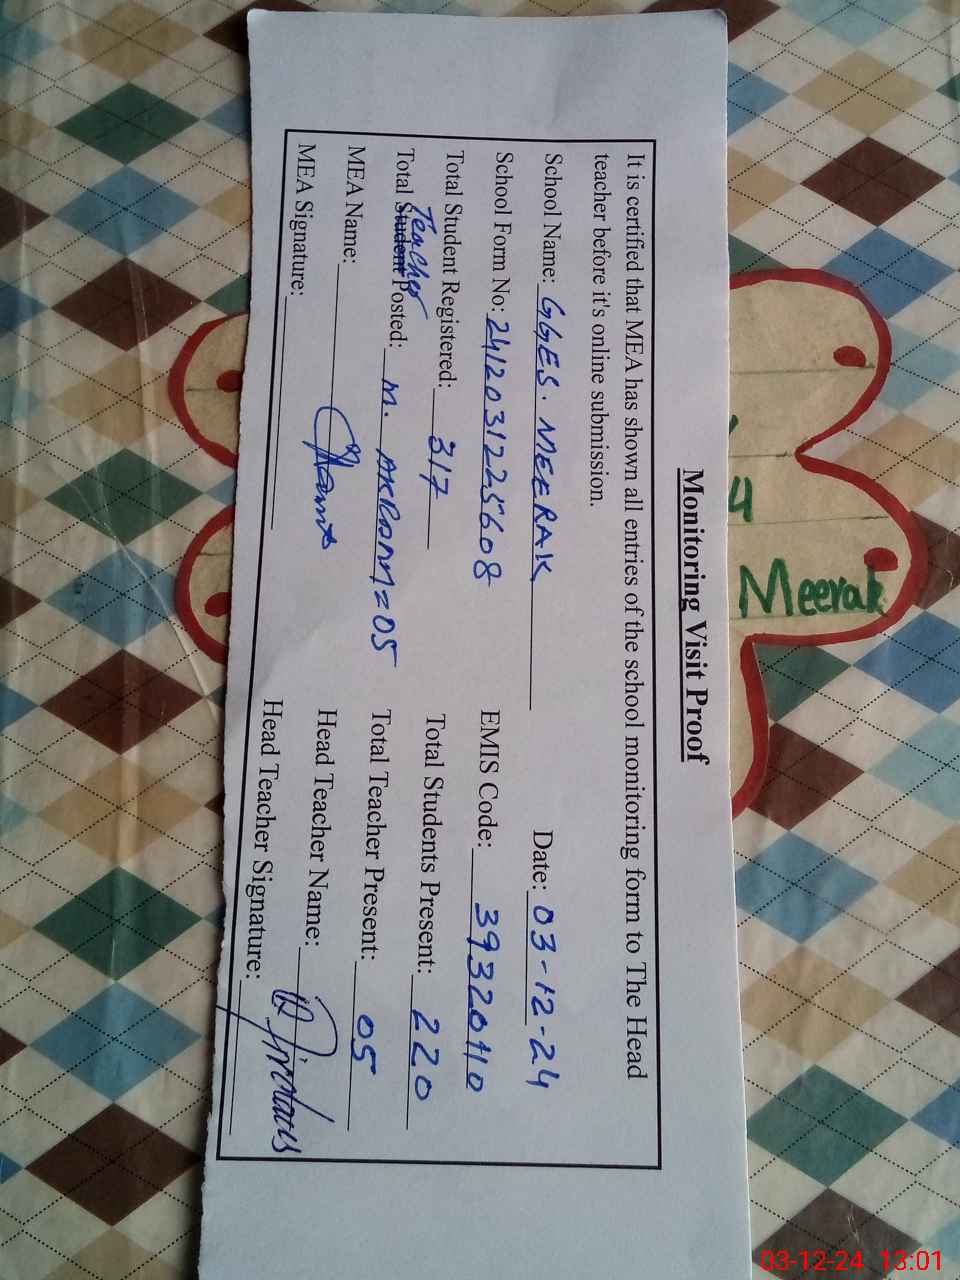 Monitoring Visit Proof
It is certified that MEA has shown all entries of the school monitoring form to The Head
teacher before it's online submission.
School Name: GGES. MEERAK Date: 03-12-24
School Form No: 2412031225608 EMIS Code: 39320110
Total Student Registered: 317 Total Students Present: 220
Teacher
Total Student Posted: M. AKRAM = 05 Total Teacher Present: 05
MEA Name: Head Teacher Name:
MEA Signature: Head Teacher Signature:
Meerak
03-12-24 13:01